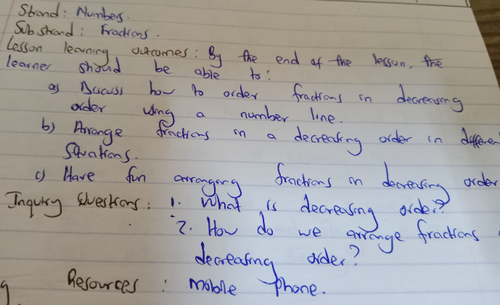 Strand: Numbers.
Sub strand: Fractions.
Lesson learning outcomes: By the end of the lesson, the
learner should be able to:
a) Discuss how to order fractions in decreasing
order using a number line.
b) Arrange fractions in a decreasing order in differen
Situations.
c) Have fun arranging fractions in decreasing order
Inquiry Questions: 1. What is decreasing order?
2. How do we arrange fractions
decreasing order?
Resources: mobile phone.